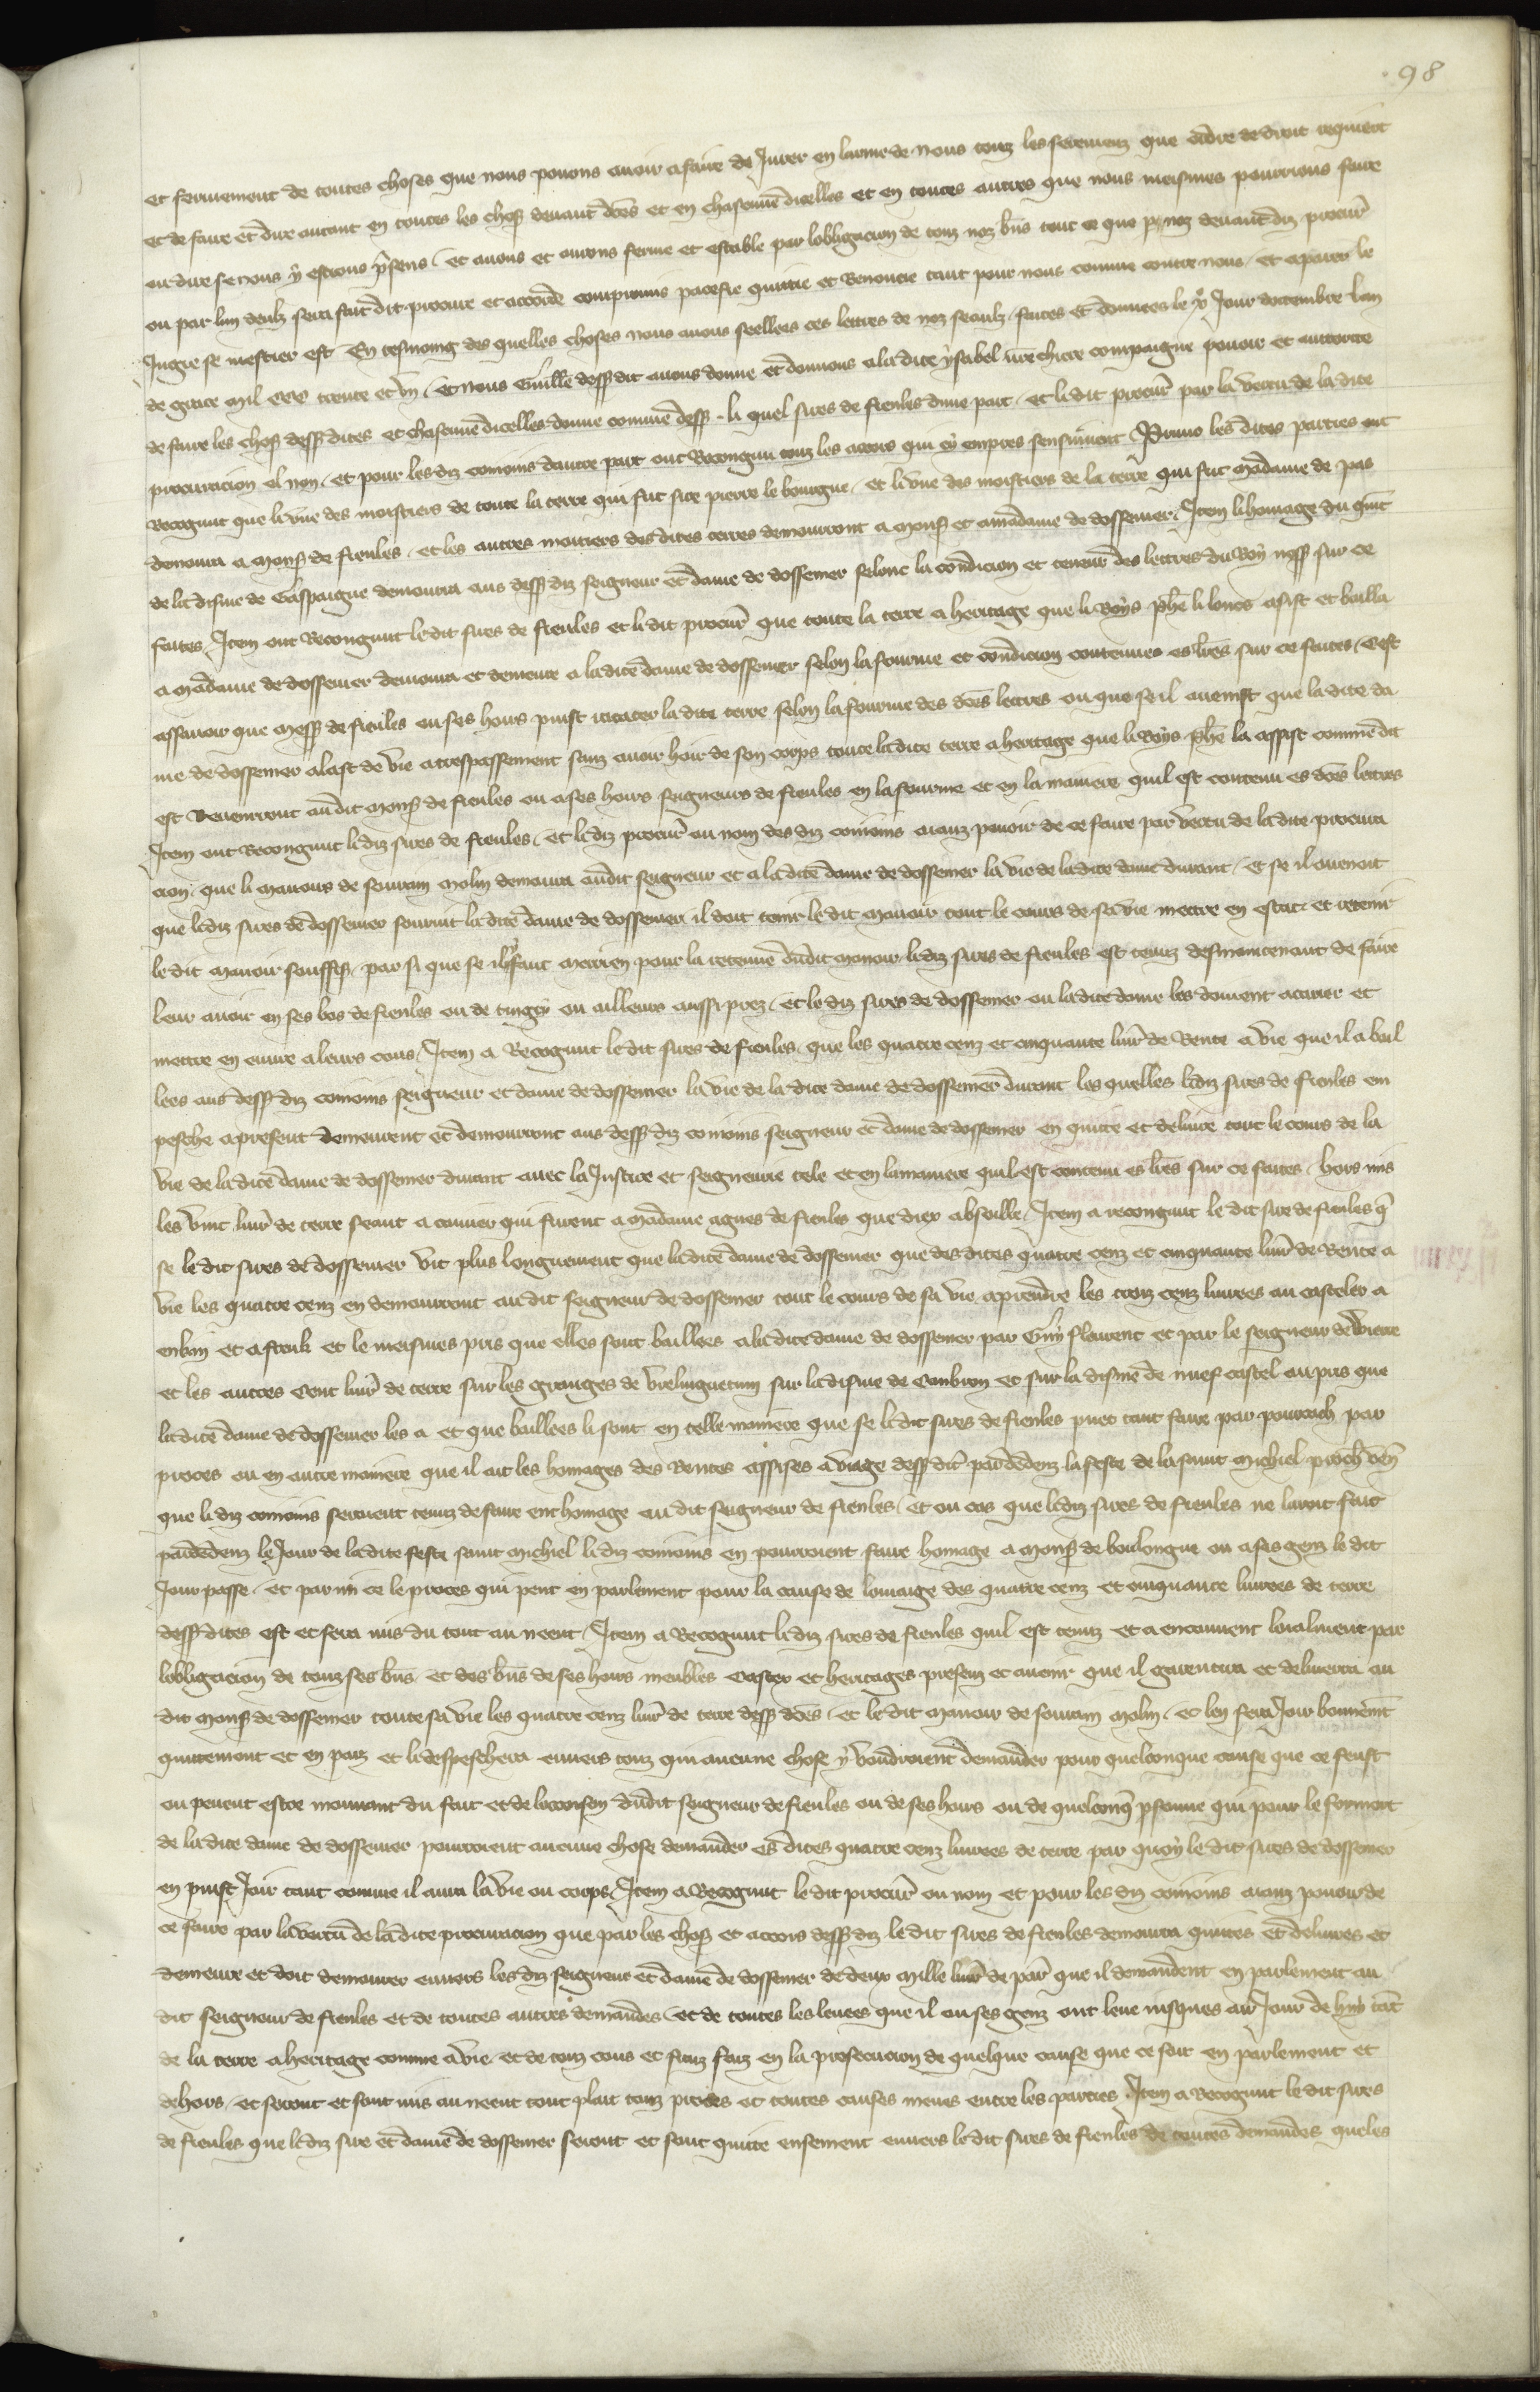 98
et seruement de toutes choses que nous pouons auoir a faire de Jurer en lame de nous touz les seremenz que ordre de droit requiert
et de faire et dire autant en toutes les chos deuant dces et en chascune dicelles et en toutes autres que nous meismes pourrions faire
ou dire se nous y estions psens / et auons et aurons ferme et estable par lobligacion de touz noz bns tout ce que p noz deuant diz procur
ou par lun deulz sera fait dit procure et accorde compromis pacefie quittie et Renoncie tant pour nous comme contre nous / et a paier le
Jugie se mestier est En tesmoing des quelles choses nous auons seellees ces lettres de noz seaulz faites et donnees le xe Jour doctembre lan
de grace mil ccc trente et vn / et nous Guille dessus dit auons donne et donnons a la dite ysabel nre chiere compaigne pouoir et auctorite
de faire les chos dess dites et chascune dicelles donne comme dess - li quel sires de fienles dune part / et li dit procur par la vertu de la dite
procuracion el non / et pour les diz conioins dautre part ont Recongnu touz les acors qui cy empres sensuiuent Primo les dites parties ont
Recognut que li vne des moitiers de toute la terre qui fut sire pierre le bourgne / et li vne des moistiers de la terre qui fut madame de pas
demoura a mons de fienles / et les autres moitiers des dites terres demourront a mons et a madame de dossemer / Item li homage du quit
de la disme de Gaspaigne demoura aus dess diz seigneur et dame de dossemer selonc la condicion et teneur des lettres du Roy nss sur ce
faites / Item ont Recongnut le dit sires de fienles et le dit procur que toute la terre a heritage que li Roys phe li loncs asist et bailla
a madame de dossemer demoura et demeure a la dite dame de dossemer selon la fourme et condicion contenues es lres sur ce faites / Cest
assauoir que mess de fienles ou ses hoirs puist racater la dite terre selon la fourme des dces lettres ou que se il auenist que la dite da
me de dossemer alast de vie a trespassement sanz auoir hoir de son corps toute la dite terre a heritage que li Roys phe la assist comme dit
est Reuenrront au dit mons de fienles ou a ses hoirs seigneurs de fienles en la fourme et en la maniere quil est contenu es dces lettres
Item ont Recongnut li diz sires de fienles / et li diz procur ou nom des diz conioins aianz pouoir de ce faire par vertu de la dite procura
cion / que li manoirs de souuerain molin demoura au dit seigneur et a la dite dame de dossemer la vie de la dite dame durant / et se il auenoit
que le diz sires de dossemer seurvit la dite dame de dossemer il doit tenir le dit manoir tout le cours de sa vie mettre en estat et retenir
le dit manoir souffis / par si que se il y faut merrien pour la retenue du dit manoir le diz sires de fienles est tenuz desmaintenant de faire
leur auoir en ses bos de fienles ou de tingry ou ailleurs aussi prez / et le diz sires de dossemer ou la dite dame les doiuent acarier et
mettre en euure a leurs cous / Item a Recognut le dit sires de fienles que les quatre cenz et cinquante liur de Rente a vie que il a bail
lees aus dess diz conioins seigneur et dame de dossemer la vie de la dite dame de dossemer durant les quelles li diz sires de fienles em
pesche a present demeurent et demourront aus dess diz conioins seigneur et dame de dossemer en quitte et deliure tout le cours de la
vie de la dite dame de dossemer durant auec la Justice et seigneurie tele et en la maniere quil est contenu es lres sur ce faites / hors mis
les vint liur de terre seant a couuer qui furent a madame agnes de fienles que diex absoille / Item a recongnut le dit sire de fienles q
se le dit sires de dossemer vit plus longuement que la dite dame de dossemer que des dites quatre cenz et cinquante liur de Rente a
vie les quatre cenz en demourront au dit seigneur de dossemer tout le cours de sa vie a prendre les trois cenz liurees au casteler a
enkin et a strik et le meismes pris que elles sont baillees a la dite dame de dossemer par Guy flourent et par le seigneur de Vierre
et les autres Cent liur de terre sur les granges de Verlinguetun sur la disme de Combron et sur la disme de nuef castel au pris que
la dite dame de dossemer les a et que baillees li sont en telle maniere que se li dit sires de fienles puet tant faire par pourcach par
proces ou en autre maniere que il ait les homages des Rentes assises a viage dess dit par dedenz la feste de la saint michiel proch ven
que li diz conioins seruent tenuz de faire ent homage au dit seigneur de fienles / Et ou cas que le diz sires de fienles ne lauoit fait
par dedenz le Jour de la dite feste saint michiel li diz conioins en pourroient faire homage a mons de bouloingne ou a ses genz le dit
Jour passe / et parmi ce le proces qui pent en parlement pour la cause de lomaige des quatre cenz et cinquante liurees de terre
dess dites est et sera mis du tout au neent / Item a Recognut li diz sires de fienles quil est tenuz et a encouuent loialment par
lobligacion de touz ses bns et des bns de ses hoirs meubles Castex et heritages presenz et auenir que il garentira et deliuerra au
dit mons de dossemer toute sa vie les quatre cenz liur de terre dess dces / et le dit manoir de souuerain molin / et len fera Joir bonnemt
quittement et en paiz et li despeschera enuers touz qui aucune chose y voudroient demander pour quelconque cause que ce feust
ou peeut estre mouuant du fait et de loccoison du dit seigneur de fienles ou de ses hoirs ou de quelconq psonne qui pour le formort
de la dite dame de dossemer pourroient aucune chose demander es dites quatre cenz liurees de terre par quoy le dit sires de dossemer
en puist Joir tant comme il aura la vie ou corps / Item a Recognut le dit procur ou nom et pour les diz conioins aianz pouoir de
ce faire par la vertu de la dite procuracion que par les chos et acors dess diz le dit sires de fienles demoura quittes et deliures et
demeure et doit demourer enuers les diz seigneur et dame de dossemer de deux mille liur de par que il demandent en parlement au
dit seigneur de fienles et de toutes autres demandes / et de toutes les leuees que il ou ses genz ont leue iusques au Jour de huy tat
de la terre a heritage comme a vie / et de touz cous et fraiz faiz en la prosecucion de quelque cause que ce soit en parlement et
dehors / et seront et sont mis au neent tout plait touz proces et toutes causes meues entre les parties / Item a Recognut le dit sires
de fienles que le diz sire et dame de dossemer seront et sont quitte ensement enuers le dit sires de fienles de toutes demandes queles